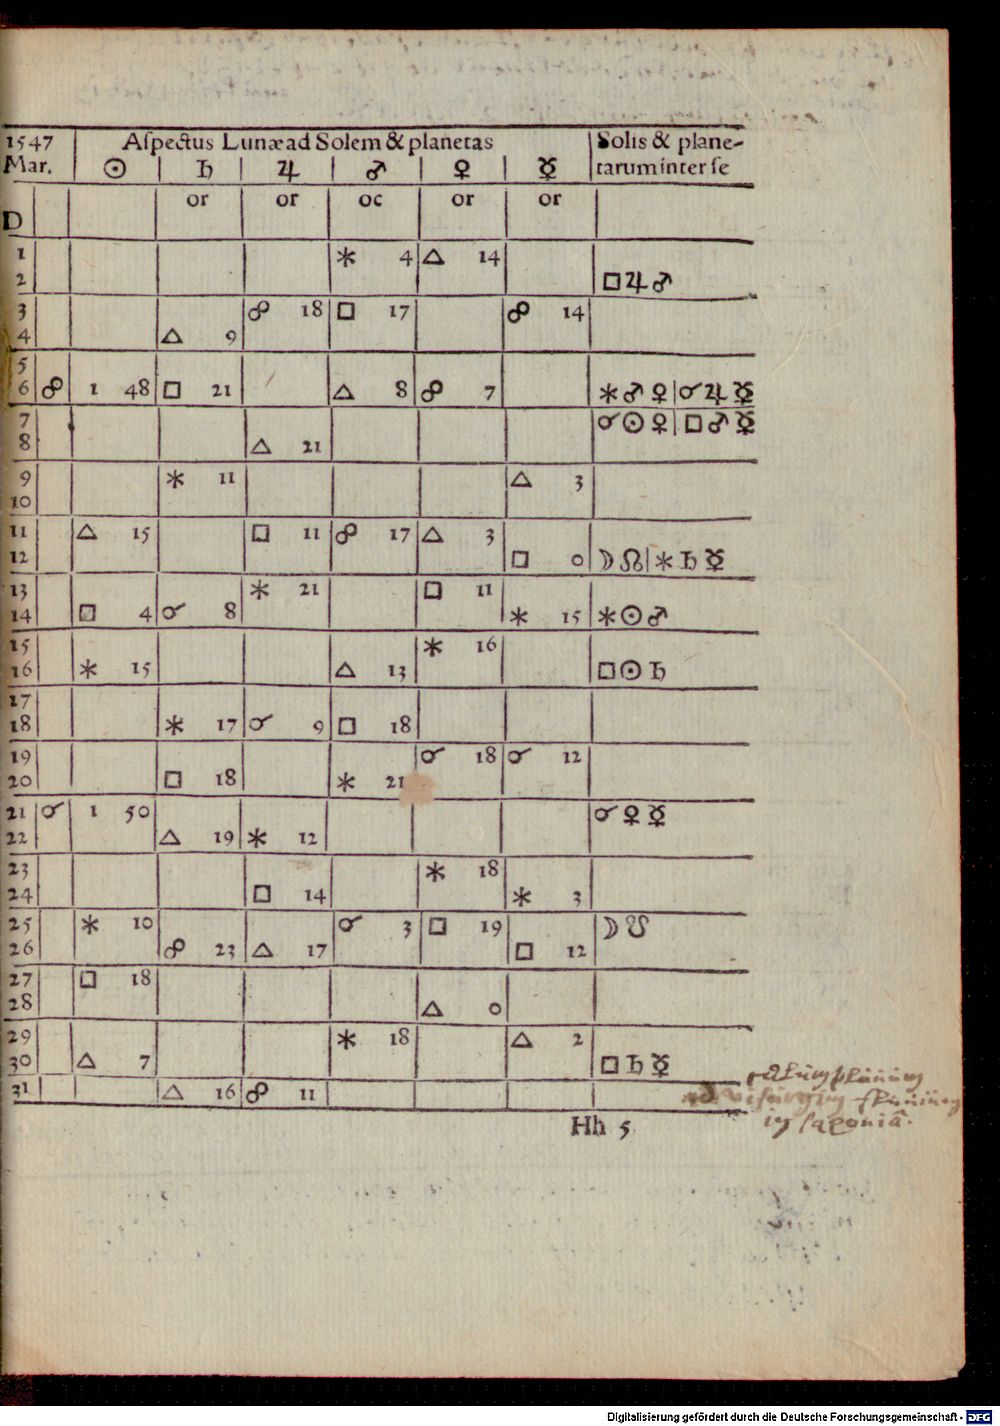 1547 Aſpectus Lunæ ad Solem & planetas Solis & plane-
Mar. ☉ ♄ ♃ ♂ ♀ ☿ tarum inter ſe
D or or oc or or
1 ⚹ 4 △ 14
2 □ ♃ ♂
3 ☍ 18 □ 17 ☍ 14
4 △ 9
5
6 ☍ 1 48 □ 21 △ 8 ☍ 7 ⚹ ♂ ♀ | ☌ ♃ ☿
7 ☌ ☉ ♀ | □ ♂ ☿
8 △ 21
9 ⚹ 11 △ 3
10
11 △ 15 □ 11 ☍ 17 △ 3
12 □ 0 ☽ ☊ | ⚹ ♄ ☿
13 ⚹ 21 □ 11
14 □ 4 ☌ 8 ⚹ 15 ⚹ ☉ ♂
15 ⚹ 16
16 ⚹ 15 △ 13 □ ☉ ♄
17
18 ⚹ 17 ☌ 9 □ 18
19 ☌ 18 ☌ 12
20 □ 18 ⚹ 21
21 ☌ 1 50 ☌ ♀ ☿
22 △ 19 ⚹ 12
23 ⚹ 18
24 □ 14 ⚹ 3
25 ⚹ 10 ☌ 3 □ 19 ☽ ☋
26 ☍ 23 △ 17 □ 12
27 □ 18
28 △ 0
29 ⚹ 18 △ 2
30 △ 7 □ ♄ ☿
31 △ 16 ☍ 11
Hh 5
Digitalisierung gefördert durch die Deutsche Forschungsgemeinschaft - DFG